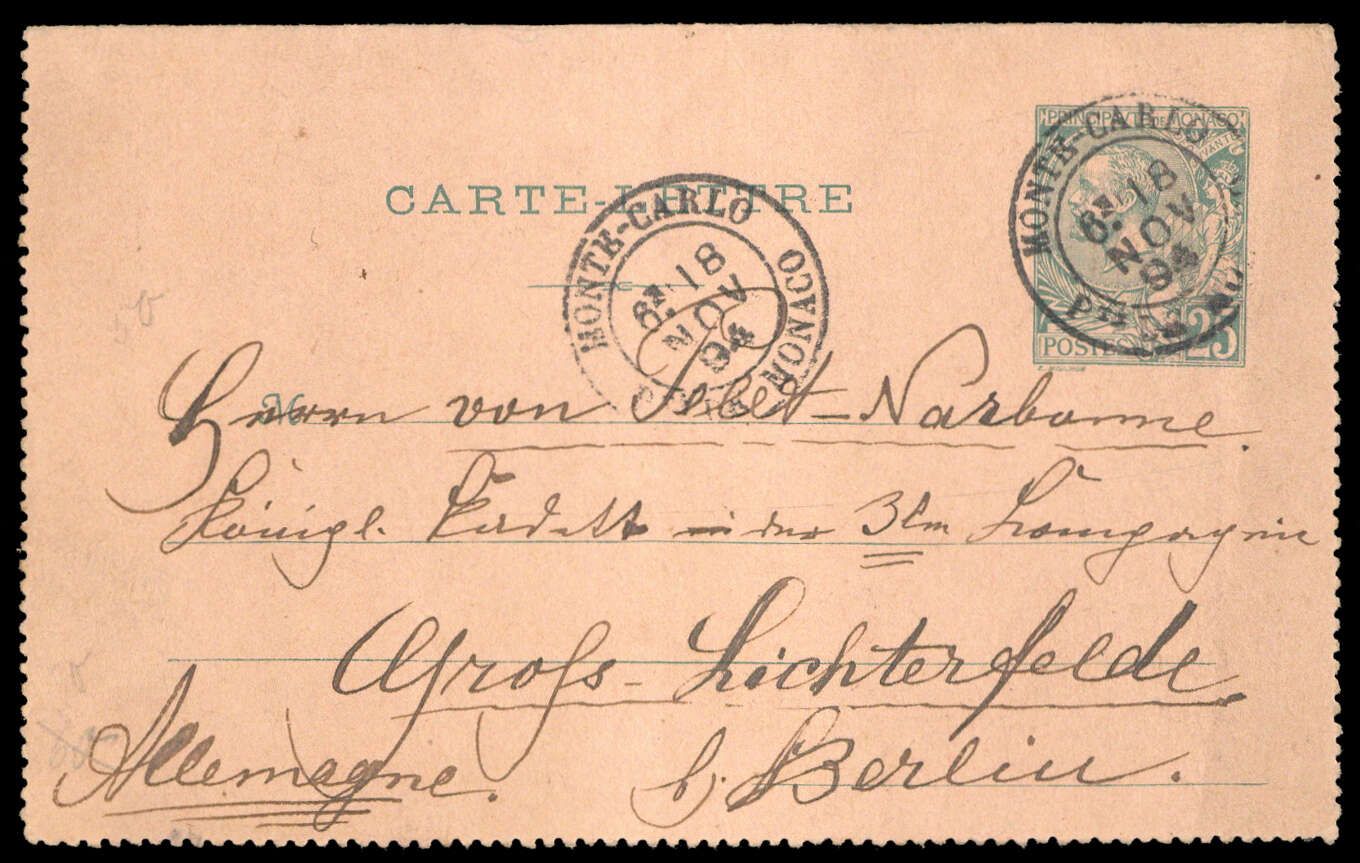 PRINCIPAUTE DE MONACO
CARTE-LETTRE
MONTE-CARLO
18
NOV
94
MONTE-CARLO
MONACO
18
NOV
94
POSTES 25
Herrn von Sebet-Narbonne.
Königl. Kadett in der 3ten Kompagnie
Gross-Lichterfelde
b/ Berlin.
Allemagne.